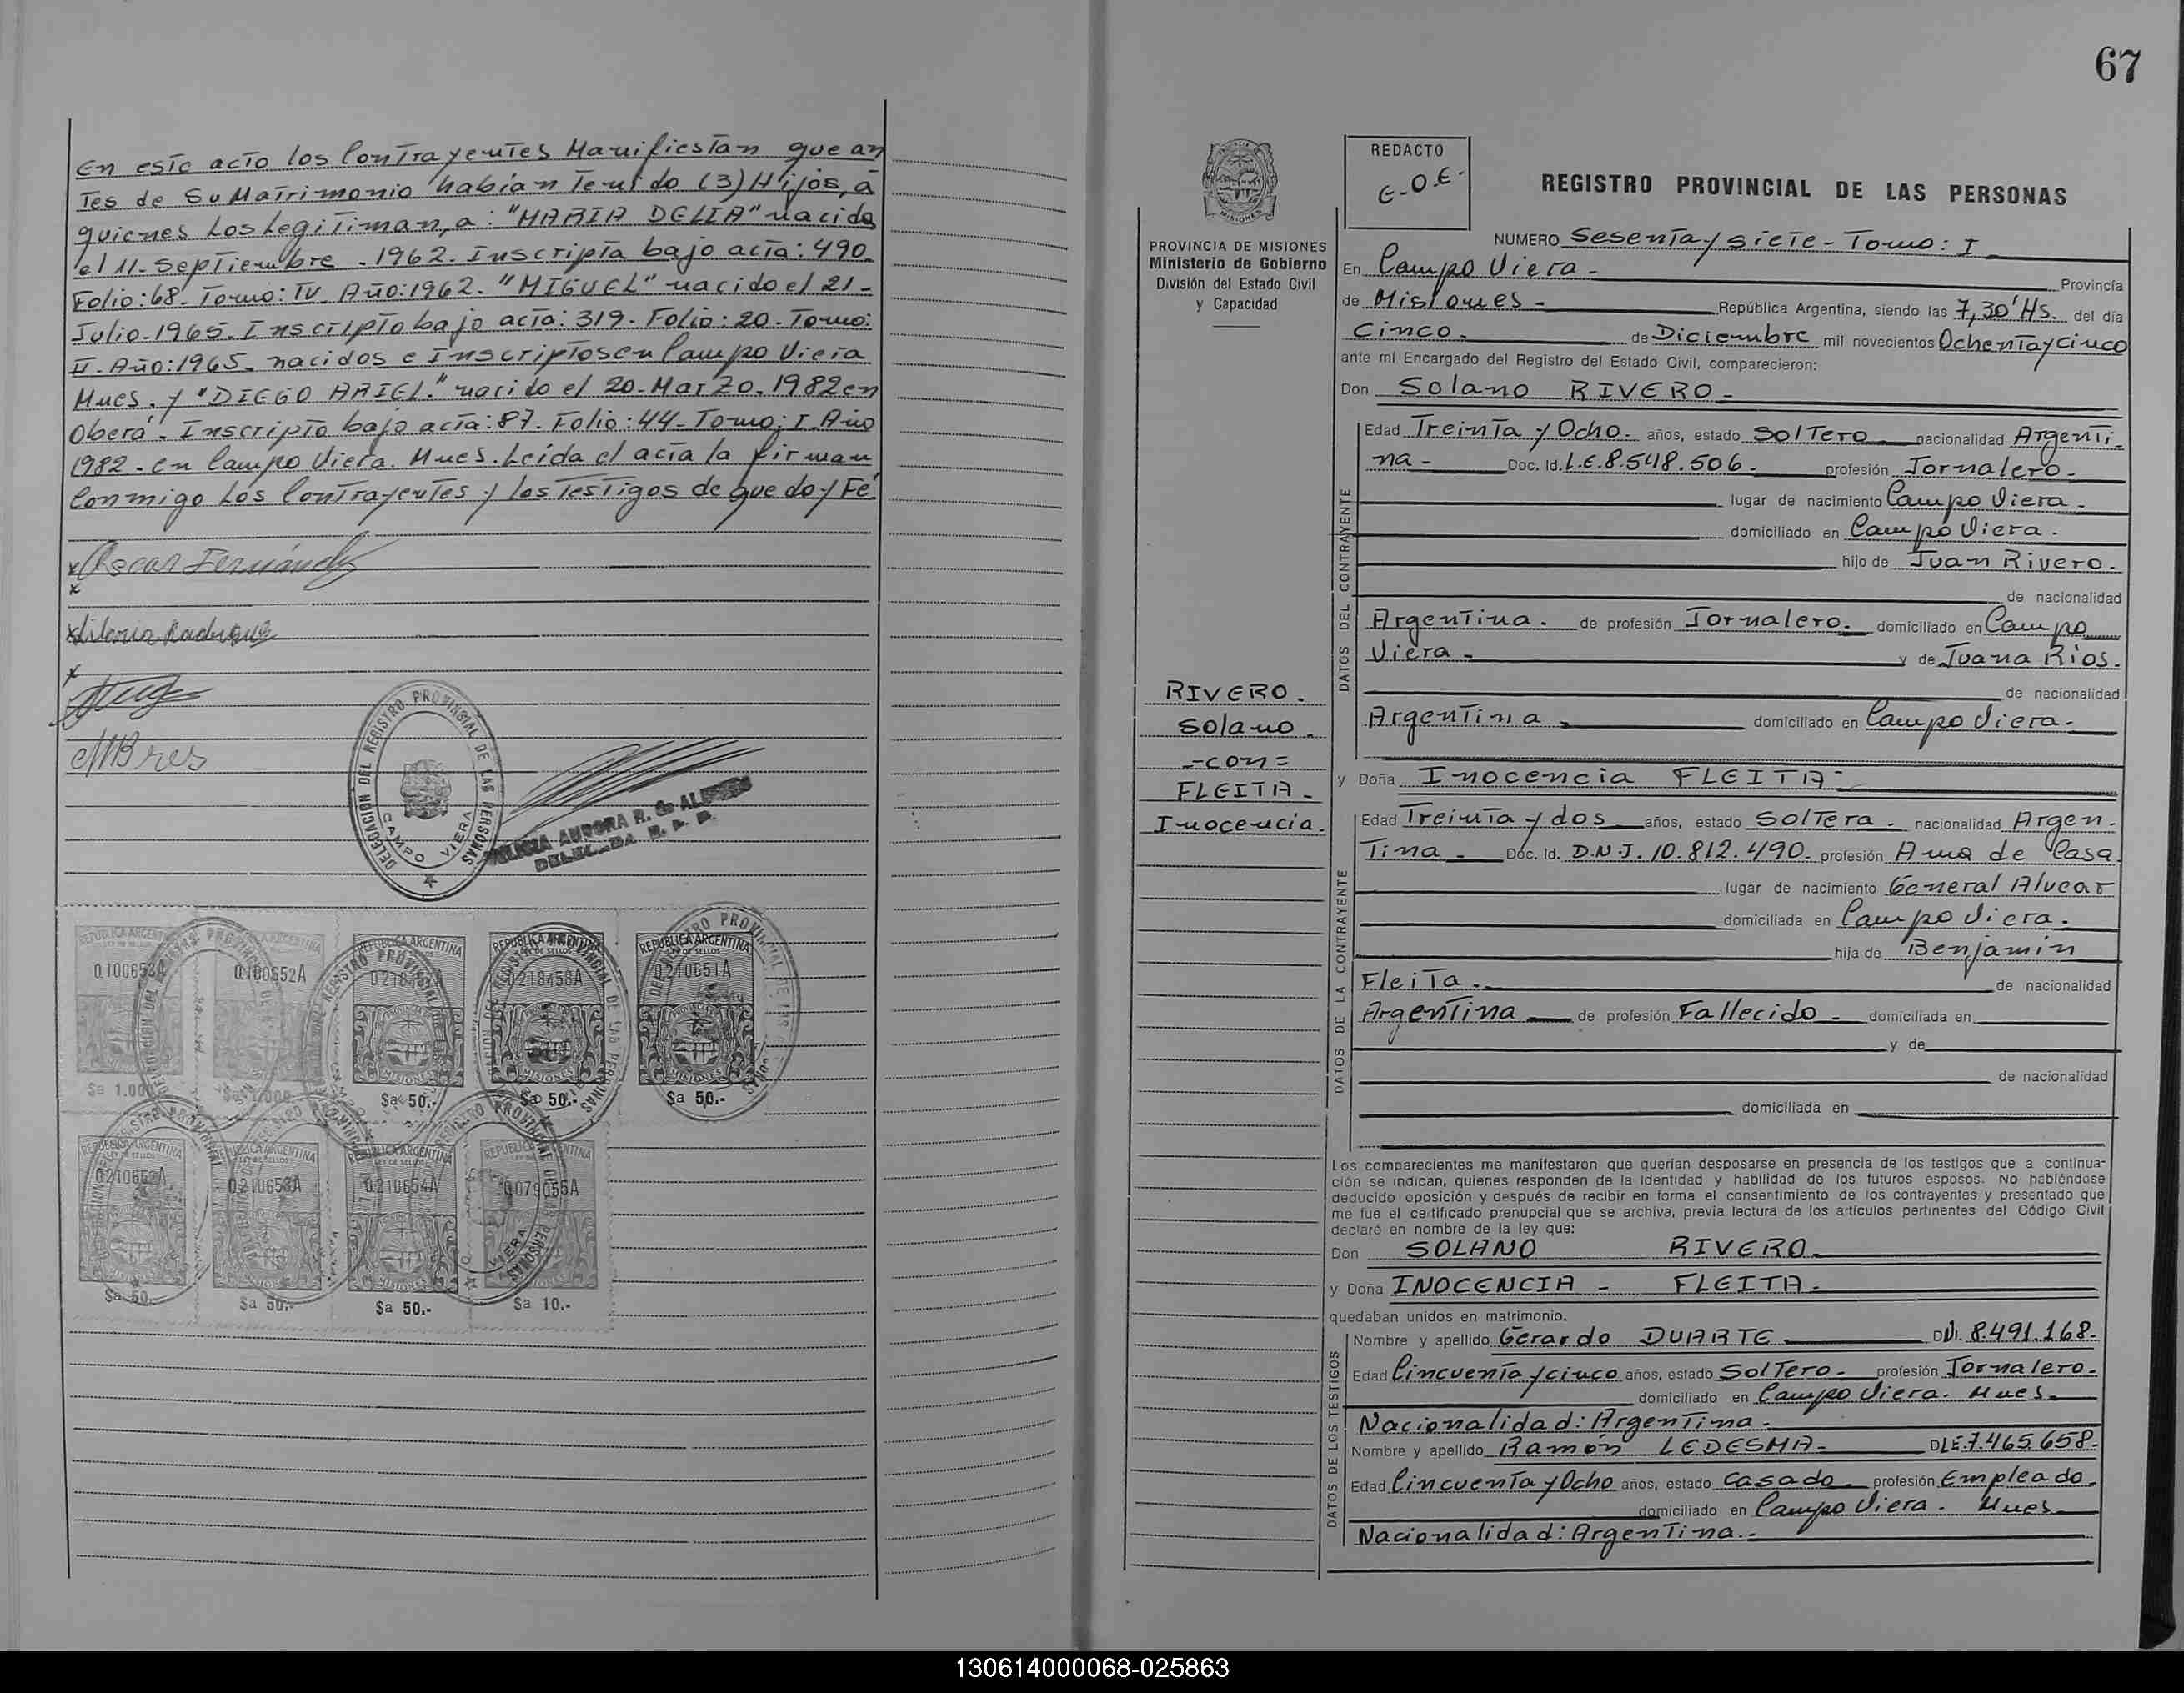 En este acto los Contrayentes Manifiestan que an
tes de Su Matrimonio habían Tenido (3) Hijos, a
quienes Los Legitiman, a: "MARIA DELIA" nacida
el 11-Septiembre -1962- Inscripta bajo acta: 490.
Folio: 68- Tomo: IV- Año: 1962. "MIGUEL" nacido el 21-
Julio-1965. Inscripto bajo acta: 319- Folio: 20- Tomo:
II-Año: 1965- nacidos e inscriptos en Campo Viera
Mnes. y "DIEGO ARIEL." nacido el 20-Marzo-1982 en
Oberá. Inscripto bajo acta: 87- Folio: 44- Tomo: I Año
1982- en Campo Viera. Mnes. Leida el acta la firman
Conmigo Los Contrayentes y los Testigos de que doy Fé.
Oscar Fernández
DELEGACION DEL REGISTRO PROVINCIAL DE LAS PERSONAS
CAMPO VIERA
AURORA R. de
REPUBLICA ARGENTINA
0.100652A
REPUBLICA ARGENTINA
REPUBLICA ARGENTINA
LEY DE SELLOS
0218458A
REPUBLICA ARGENTINA
LEY DE SELLOS
0.210651A
MISIONES
$a 1.000
$a 50.-
$a 50.-
$a 50.-
REPUBLICA ARGENTINA
0.210653A
0.210654A
0.079055A
$a 50.-
$a 50.-
$a 50.-
$a 10.-
67
PROVINCIA DE MISIONES
Ministerio de Gobierno
División del Estado Civil
y Capacidad
RIVERO.
Solano.
-con=
FLEITA-
Inocencia.
REDACTO
E-O.E-
REGISTRO PROVINCIAL DE LAS PERSONAS
NUMERO Sesenta y siete- Tomo: I
En Campo Viera- Provincia
de Misiones- República Argentina, siendo las 7,30'Hs. del día
Cinco- de Diciembre mil novecientos Ochenta y Cinco
ante mí Encargado del Registro del Estado Civil, comparecieron:
Don Solano RIVERO-
DATOS DEL CONTRAYENTE
Edad Treinta y Ocho- años, estado Soltero nacionalidad Argenti-
na- Doc. Id. L.E. 8.548.506- profesión Jornalero-
lugar de nacimiento Campo Viera-
domiciliado en Campo Viera.
hijo de Juan Rivero.
de nacionalidad
Argentina. de profesión Jornalero. domiciliado en Campo
Viera- y de Juana Rios.
de nacionalidad
Argentina- domiciliado en Campo Viera-
y Doña Inocencia FLEITA-
DATOS DE LA CONTRAYENTE
Edad Treinta y dos años, estado Soltera. nacionalidad Argen-
Tina- Doc. Id. D.N.I. 10.812.490- profesión Ama de Casa
lugar de nacimiento General Alvear
domiciliada en Campo Viera.
hija de Benjamín
Fleita. de nacionalidad
Argentina de profesión Fallecido- domiciliada en
y de
de nacionalidad
domiciliada en
Los comparecientes me manifestaron que querían desposarse en presencia de los testigos que a continua-
ción se indican, quienes responden de la identidad y habilidad de los futuros esposos. No habiéndose
deducido oposición y después de recibir en forma el consentimiento de los contrayentes y presentado que
me fue el certificado prenupcial que se archiva, previa lectura de los artículos pertinentes del Código Civil
declaré en nombre de la ley que:
Don SOLANO RIVERO
y Doña INOCENCIA- FLEITA-
quedaban unidos en matrimonio.
DATOS DE LOS TESTIGOS
Nombre y apellido Gerardo DUARTE DNI. 8.491.168-
Edad Cincuenta y cinco años, estado Soltero- profesión Jornalero-
domiciliado en Campo Viera. Mnes-
Nacionalidad: Argentina-
Nombre y apellido Ramón LEDESMA- DLE. 7.465.658-
Edad Cincuenta y Ocho años, estado Casado profesión Empleado-
domiciliado en Campo Viera. Mnes
Nacionalidad: Argentina.-
130614000068-025863